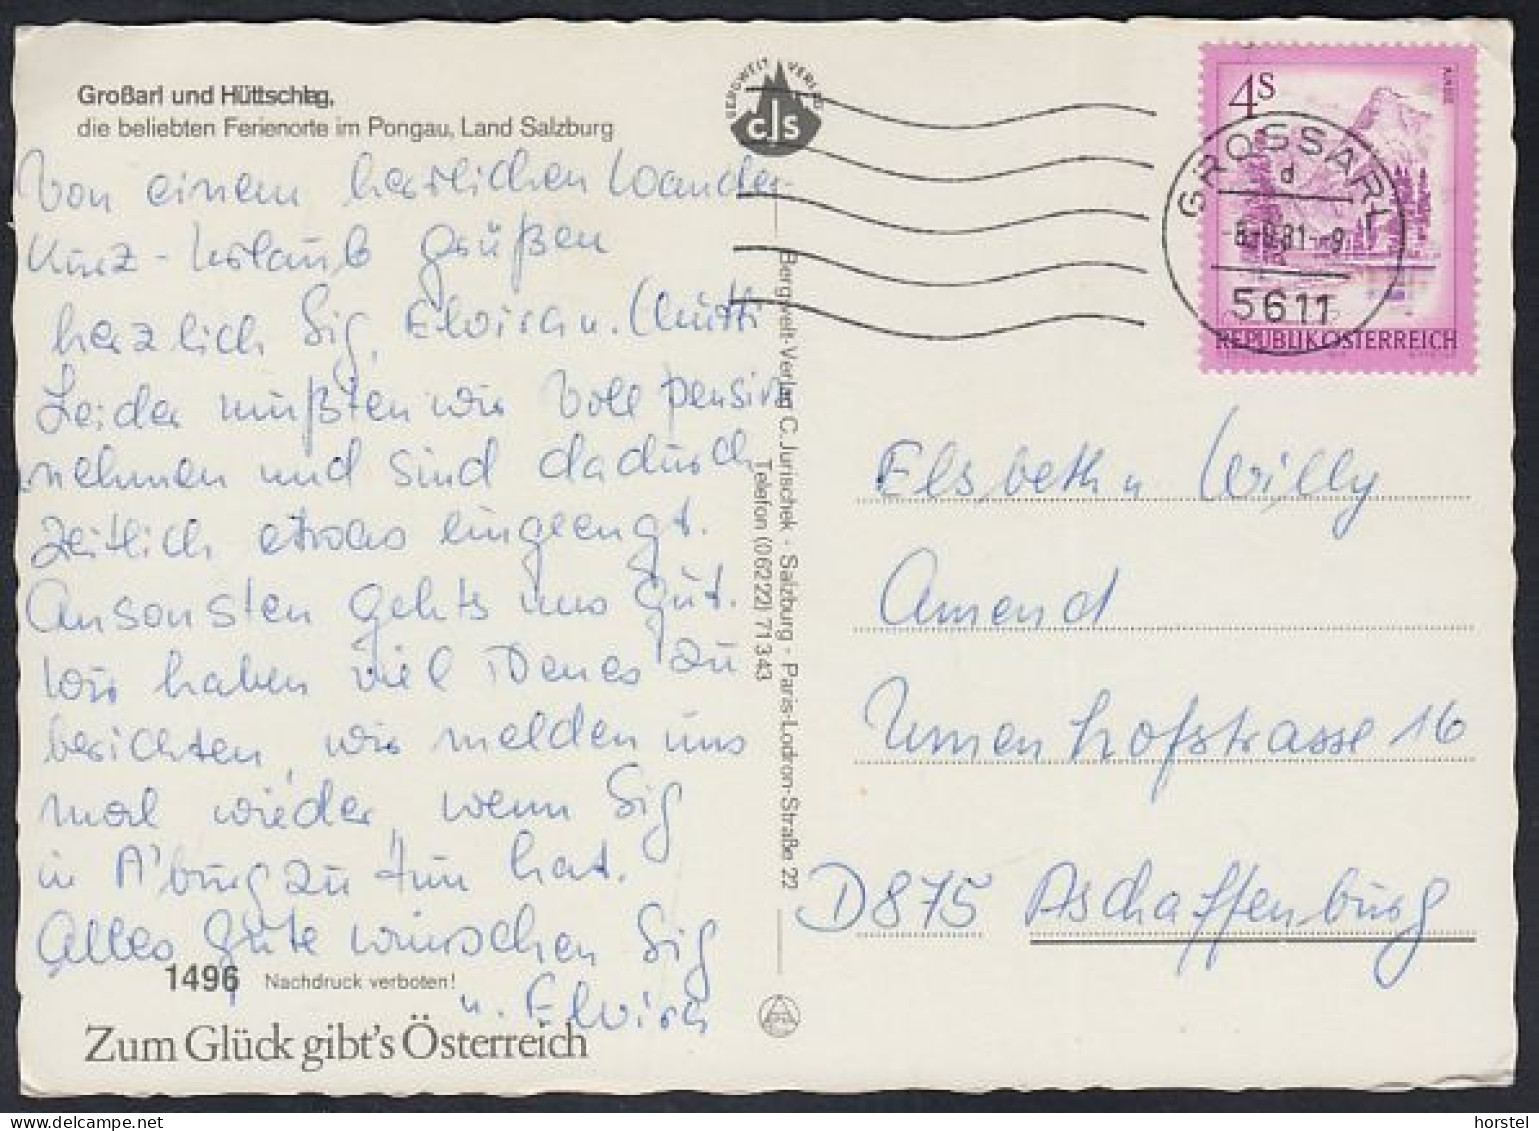 Großarl und Hüttschlag,
die beliebten Ferienorte im Pongau, Land Salzburg
Von einem herrlichen Wander-
Kurz-Urlaub grüßen
herzlich Sig, Elvira u. Mutti
Leider mußten wir Vollpension
nehmen und sind dadurch
zeitlich etwas eingeengt.
Ansonsten gehts uns gut.
Wir haben viel Neues zu
berichten, wir melden uns
mal wieder, wenn Sig
in A'burg zu tun hat.
Alles Gute wünschen Sig
u. Elvira
1496 Nachdruck verboten!
Zum Glück gibt's Österreich
BERGWELT VERLAG
CJS
Bergwelt-Verlag C. Jurischek - Salzburg - Paris-Lodron-Straße 22
Telefon (06222) 71343
4S
ALMSEE
REPUBLIK ÖSTERREICH
GROSSARL
d
5611
Elsbeth u Willy
Amend
Ulmenhofstrasse 16
D875 Aschaffenburg
horstel